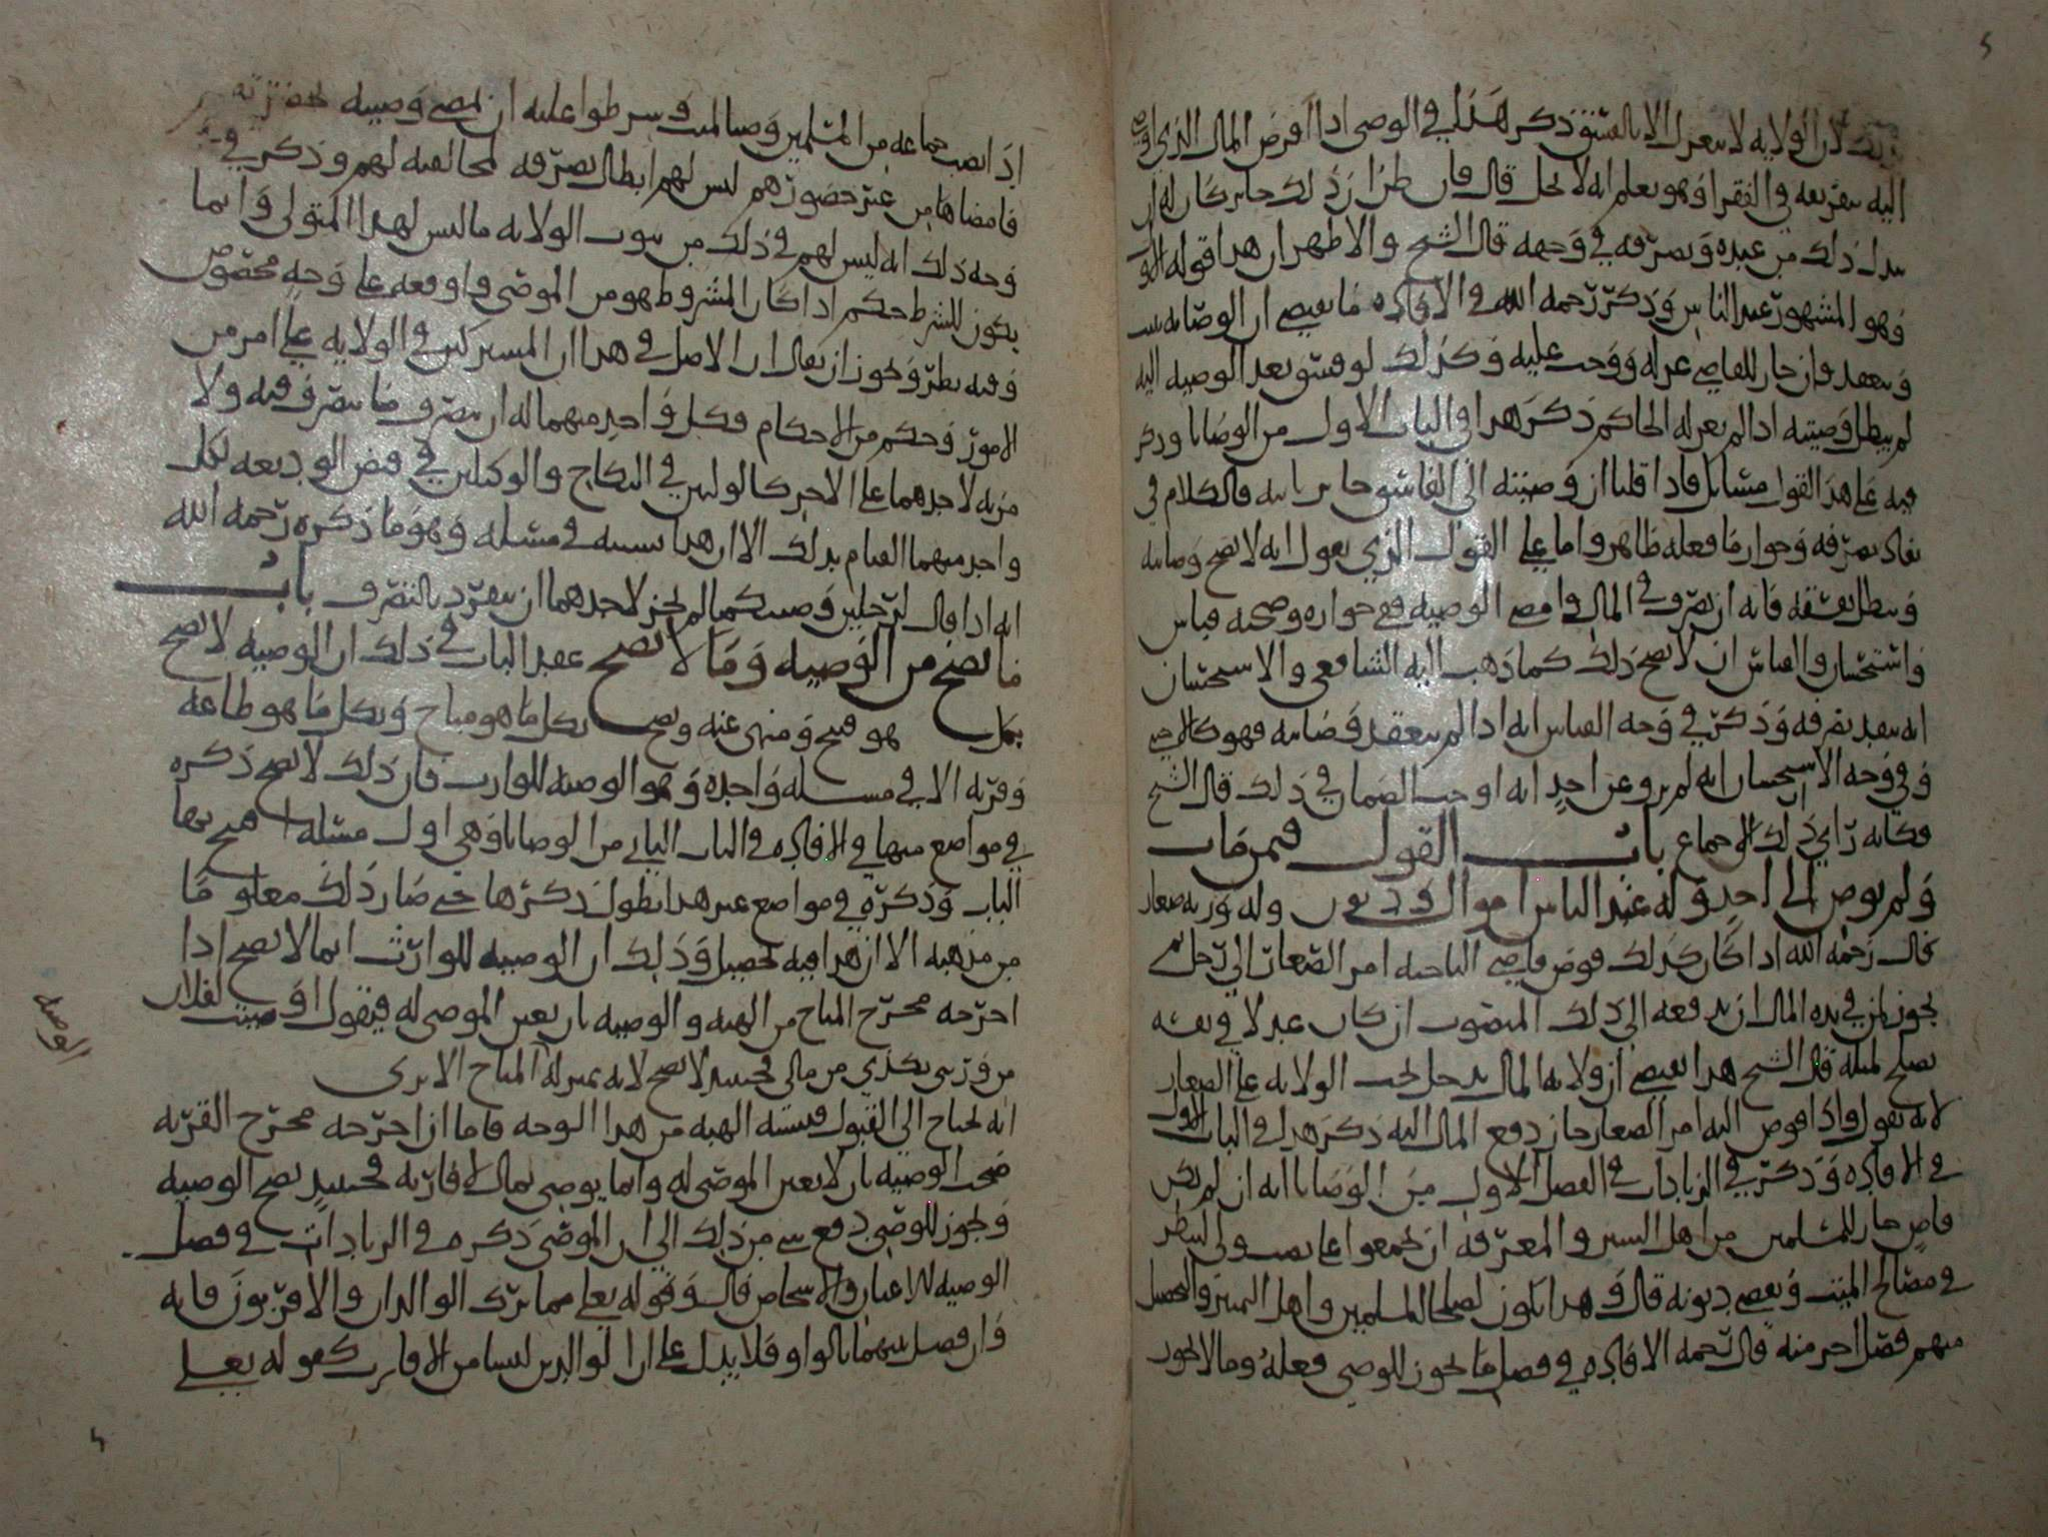 ذلك لان الولايه لا تنعزل الا بالفسق ذكر هذا في الوصي اذا اقرض المال الذي اوصي
اليه بتفريقه في الفقرا وهو يعلم انه لا يحل قال فان ظن ان ذلك جايز كان له ان
يبدل ذلك من عنده ويصرفه في وجهه قال الشيخ والاظهر ان هذا قوله
وهو المشهور عند الناس وذكر رحمه الله في الافاده ما يقتضي ان الوصايه تثبت
وتنعقد وان جاز للقاضي عزله ووجب عليه وكذلك لو فسق بعد الوصيه اليه
لم يبطل وصيته اذا لم يعزله الحاكم ذكر هذا في الباب الاول من الوصايا وذكر
فيه على هذا القول مسايل فاذا قلنا ان وصيته الى الفاسق جايز ثابته فالكلام في
نفاذ تصرفه وجواز ما فعله ظاهر واما على القول الذي يقول انه لا تصح وصايته
وتبطل بفسقه فانه ان تصرف في المال وامضى الوصيه ففي جوازه وصحته قياس
واستحسان والقياس ان لا يصح ذلك كما ذهب اليه الشافعي والاستحسان
انه ينفذ تصرفه وذكر في وجه القياس انه اذا لم تنعقد وصايته فهو كالاجنبي
وفي وجه الاستحسان انه لم يرو عن احد انه اوجب الضمان في ذلك قال الشيخ
فكانه راي ذلك الاجماع باب القول فيمن مات
ولم يوص الى احد وله عند الناس اموال وديون وله ورثه صغار
قال رحمه الله اذا كان كذلك فوض قاضي الناحيه امر الصغار الى رجل
يجوز لمن في يده المال ان يدفعه الى ذلك المنصوب ان كان عدلا في نفسه
يصلح لمثله قال الشيخ هذا يقتضي ان ولايه المال يدخل تحت الولايه على الصغار
لانه يقول واذا فوض اليه امر الصغار جاز دفع المال اليه ذكر هذا في الباب الاول
في الافاده وذكر في الزيادات في الفصل الاول من الوصايا انه ان لم يكن
قاض جاز للمسلمين من اهل الستر والمعرفه ان يجمعوا على نصب ولي لينظر
في مصالح الميت ويقضي ديونه قال وهذا يكون لصلحا المسلمين واهل التميز والتحصيل
منهم فصل اخر منه قال رحمه الافاده في فصل ما يجوز للوصي فعله وما لا يجوز
اذا نصب جماعه من المسلمين وصيا لميت وشرطوا عليه ان يمضي وصيته بحضرتهم
فامضاها من غير حضورهم ليس لهم ابطال تصرفه لمخالفته لهم وذكر في
وجه ذلك انه ليس لهم في ذلك من ثبوت الولايه ما ليس لهذا المتولي وانما
يكون للشرط حكم اذا كان المشروط هو من الموصي واوقعه على وجه مخصوص
وفيه نظر ويجوز ان يقال ان الاصل في هذا ان المشتركين في الولايه على امر من
الامور وحكم من الاحكام فكل واحد منهما له ان يتصرف ما يتصرف فيه ولا
مزيه لاحدهما على الاخر كالوليين في النكاح والوكيلين في قبض الوديعه لكل
واحد منهما القيام بذلك الا ان هذا في مسله وهو ما ذكره رحمه الله
انه اذا قال لرجلين وصيتكما لم يجز لاحدهما ان ينفرد بالتصرف باب
ما يصح من الوصيه وما لا يصح عقد الباب في ذلك ان الوصيه لا تصح
بكل هو قبيح ومنهى عنه وتصح بكل ما هو مباح وبكل ما هو طاعه
وقربه الا في مسله واحده وهو الوصيه للوارث فان ذلك لا يصح ذكره
في مواضع منها في الافاده في الباب الثاني من الوصايا وهي اول مسله افتتح بها
الباب وذكره في مواضع غير هذا يطول ذكرها حتى صار ذلك معلوما
من مذهبه الا ان هذا فيه تحصيل وذلك ان الوصيه للوارث انما لا تصح اذا
اخرجه مخرج المباح من الهبه والوصيه بان يعين الموصى له فيقول اوصيت لفلان
من ورثتي بكذى من مالي فحينئذ لا تصح لانه بمنزله المباح الا ترى
انه يحتاج الى القبول فيشبه الهبه من هذا الوجه فاما ان اخرجه مخرج القربه
صحت الوصيه بان لا يعين الموصى له وانما يوصي بمال لاقاربه فحينئذ تصح الوصيه
ويجوز للوصي دفع شي من ذلك الى ابن الموصي ذكره في الزيادات في فصل
الوصيه للاعيان والاشخاص قال وقوله تعلى مما ترك الوالدان والاقربون فانه
وان فصل بينهما بالواو فلا يدل على ان الوالدين ليسا من الاقارب كقوله تعلى
الوصيه